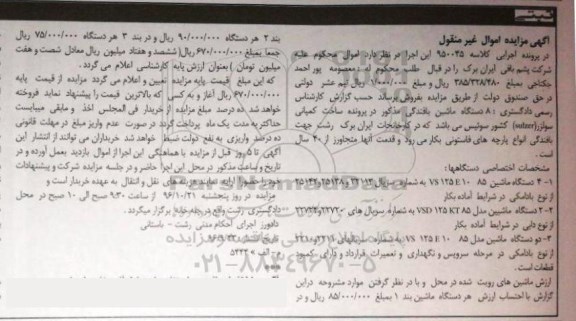 آگهی مزایده اموال غیر منقول
در پرونده اجرایی کلاسه ۹۵۰۰۲۵ این اجرا در نظر دارد اموال محکوم علیه
شرکت پشم بافی ایران برک را در قبال طلب محکوم له معصومه پور احمد
جکتاجی بمبلغ ۳۸۵/۳۲۸/۴۸۰ ریال و مبلغ ریال نیم عشر دولتی
در حق صندوق دولت از طریق مزایده بفروش برساند حسب گزارش کارشناس
رسمی دادگستری ۸ دستگاه ماشین بافندگی مذکور در پرونده ساخت کمپانی
سولزر (sulzer) کشور سوئیس می باشد که در کارخانجات ایران برک رشت جهت
بافندگی انواع پارچه های فاستونی بکار می رود و قدمت آنها متجاوز از ۲۰ سال
است .
مشخصات اختصاصی دستگاهها :
۱- ۴ دستگاه ماشین ۸۵ VS 125 E 10 به شماره سریال
از نوع بادامکی در شرایط آماده بکار
۲- ۲ دستگاه ماشین مدل ۸۵ VSD 125 KT به شماره سریال های
از نوع دابی در شرایط آماده بکار
۳- دو دستگاه ماشین مدل ۸۵ VS 125 E 10 به شماره
از نوع بادامکی در مرحله سرویس و نگهداری و تعمیرات قرارداد و دارای کمبود
قطعات است .
ارزش ماشین های رویت شده در محل و با در نظر گرفتن موارد مشروحه در این
گزارش با احتساب ارزش هر دستگاه ماشین بند ۱ بمبلغ ۸۵/۰۰۰/۰۰۰ ریال و در
بند ۲ هر دستگاه ۹۰/۰۰۰/۰۰۰ ریال و در بند ۳ هر دستگاه ۷۵/۰۰۰/۰۰۰ ریال
جمعا بمبلغ ۶۷۰/۰۰۰/۰۰۰ ریال ( ششصد و هفتاد میلیون ریال معادل شصت و هفت
میلیون تومان ) بعنوان ارزش پایه کارشناسی اعلام می گردد .
که این مبلغ قیمت پایه مزایده تعیین و اعلام می گردد مزایده از قیمت پایه
۶۷۰/۰۰۰/۰۰۰ ریال آغاز و به کسی که بالاترین قیمت را پیشنهاد نماید فروخته
خواهد شد ده درصد مبلغ مزایده از خریدار فی المجلس اخذ و مابقی میبایست
حداکثر به مدت یک ماه پرداخت گردد در صورت عدم واریز مبلغ در مهلت قانونی
ده درصد واریزی به نفع دولت ضبط خواهد شد خریداران می توانند از انتشار این
آگهی تا ۵ روز قبل از مزایده با هماهنگی این اجرا از اموال بازدید بعمل آورده و در
تاریخ و ساعت مذکور در محل این اجرا حاضر و در جلسه مزایده شرکت و پیشنهادات
خود را حضورا ارایه نمایند هزینه های نقل و انتقال به عهده خریدار است و
مزایده در روز پنجشنبه ۹۶/۱۰/۲۱ از ساعت ۹:۳۰ صبح الی ۱۰ صبح در محل
دادگستری رشت واقع در برگزار میگردد .
دادورز اجرای احکام مدنی رشت - باستانی
تاریخ انتشار
۵۴۲۳
۰۲۱-۸۸۳۴۹۶۷۰-۵